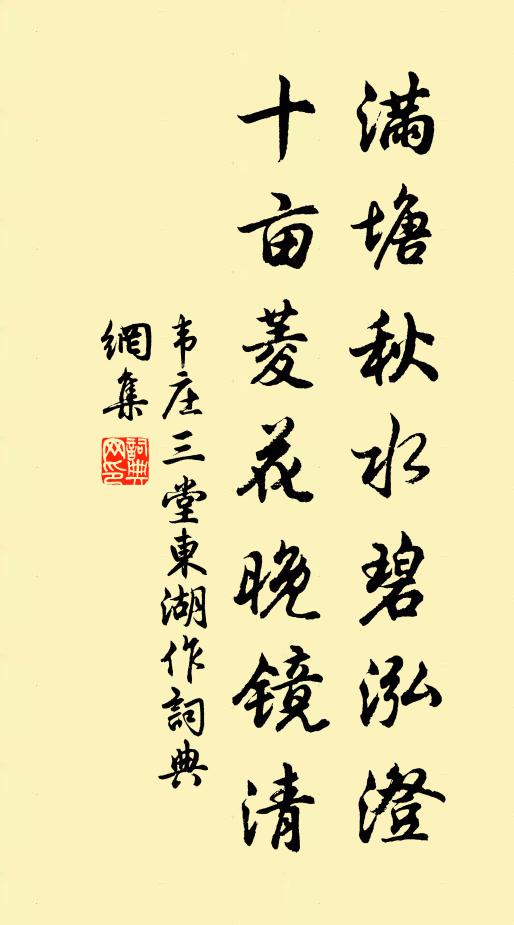 满塘秋水碧泓澄
十亩菱花晚镜清
韦庄三堂東湖作詞典
網集
詞典网印